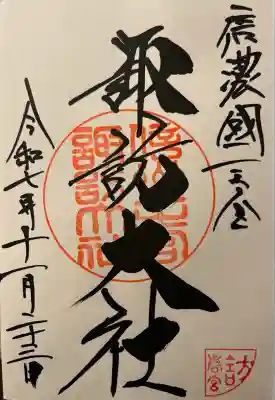 信濃國一之宮
諏訪大社
令和七年十一月二十三日